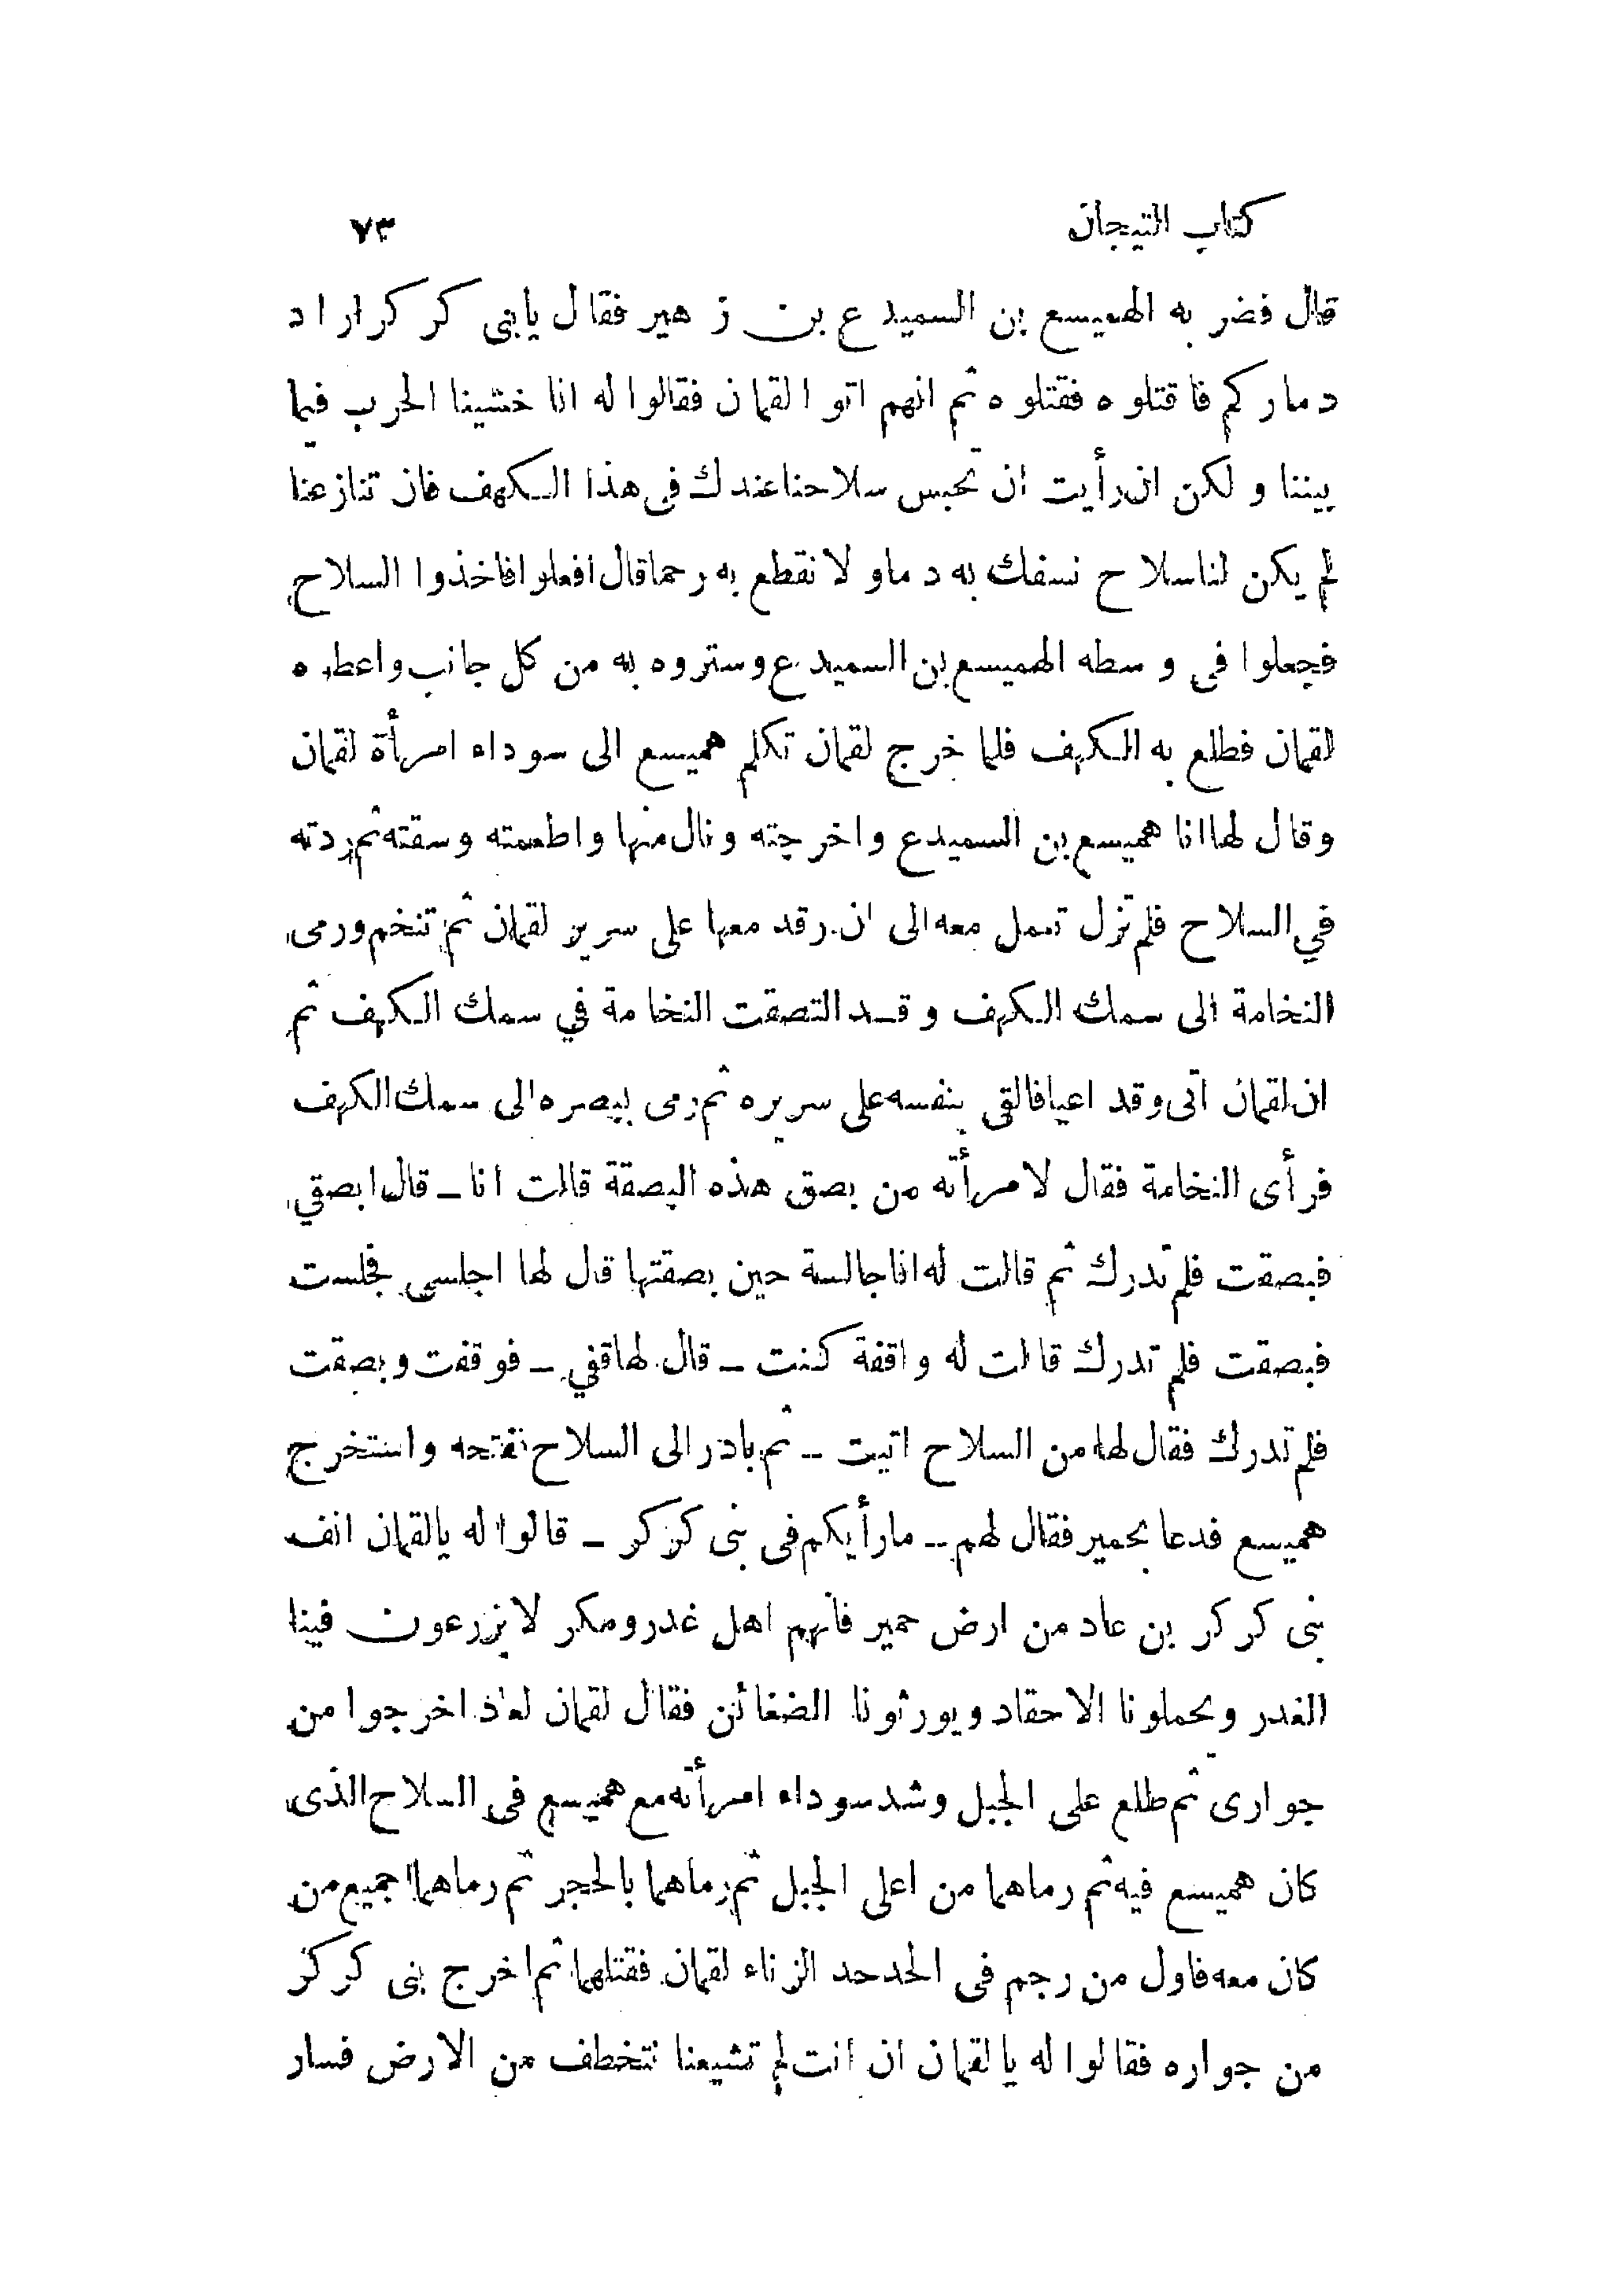 كتاب التيجان ٧٣
قال فضر به الهميسع بن السميدع بن زهير فقال يابنى كركر اراد
دماركم فاقتلوه فقتلوه ثم انهم اتوا لقمان فقالوا له انا خشينا الحرب فيما
بيننا ولكن ان رأيت ان تحبس سلاحنا عندك فى هذا الكهف فان تنازعنا
لم يكن لنا سلاح نسفك به دما ولا نقطع به رحما قال افعلوا فاخذوا السلاح
فجعلوا فى وسطه الهميسع بن السميدع وستروه به من كل جانب واعطوه
لقمان فطلع به الكهف فلما خرج لقمان تكلم هميسع الى سوداء امرأة لقمان
وقال لها انا هميسع بن السميدع واخرجته ونال منها واطعمته وسقته ثم ردته
في السلاح فلم تزل تعمل معه الى ان رقد معها على سرير لقمان ثم تنخم ورمى
النخامة الى سمك الكهف وقد التصقت النخامة في سمك الكهف ثم
ان لقمان آتى وقد اعيا فالقى بنفسه على سريره ثم رمى ببصره الى سمك الكهف
فرأى النخامة فقال لامرأته من بصق هذه البصقة قالت انا ـ قال ابصقي
فبصقت فلم تدرك ثم قالت له انا جالسة حين بصقتها قال لها اجلسي فجلست
فبصقت فلم تدرك قالت له واقفة كنت ـ قال لها قفي ـ فوقفت وبصقت
فلم تدرك فقال لها من السلاح اتيت ـ ثم بادر الى السلاح ففتحه واستخرج
هميسع فدعا بحمير فقال لهم ـ ما رأيكم فى بنى كركر ـ قالوا له يالقمان انف
بنى كركر بن عاد من ارض حمير فانهم اهل غدر ومكر لا يزرعون فينا
الغدر ويحملونا الاحقاد ويورثونا الضغائن فقال لقمان لعاد اخرجوا من
جوارى ثم طلع على الجبل وشد سوداء امرأته مع هميسع فى السلاح الذى
كان هميسع فيه ثم رماهما من اعلى الجبل ثم رماهما بالحجر ثم رماهما جميع من
كان معه فاول من رجم فى الحد حد الزناء لقمان فقتلهما ثم اخرج بنى كركر
من جواره فقالوا له يالقمان ان انت لم تشيعنا نتخطف من الارض فسار